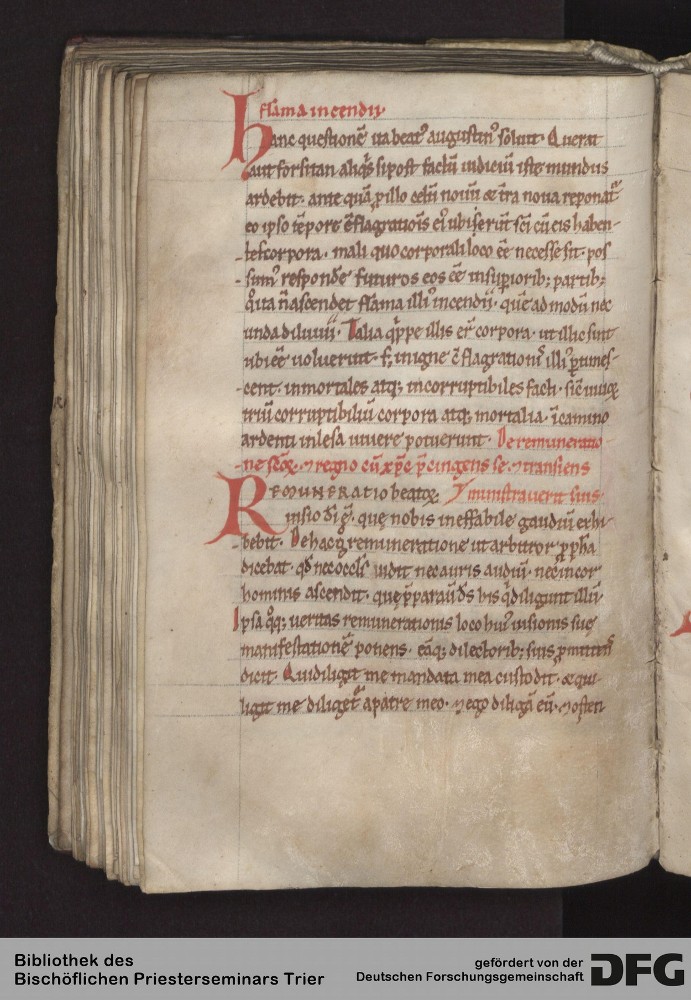 flāma incendii.
Hanc questionē ita beat᷒ augustin᷒ soluit. Querit
aut forsitan aliq̄s si post factū iudiciū iste mundus
ardebit. ante quā p illo celū nouū & t̄ra noua reponat᷒
eo ipso tēpore ɔflagratiōis ei᷒ ubi serūt sc̄i cū eis haben-
tes corpora. mali quo corporali loco eē necesse sit. pos
sum᷒ respondē futuros eos eē in supiorib; partib;
q̊ ita n̄ ascendet flāma illi᷒ incendii. quē ad modū nec
unda diluuii. Talia q̄ppe illis er̄ corpora. ut illic sint
ubi eē uoluerint. s; in igne ɔflagrationis illi᷒ ptimes-
cent. inmortales atq; incorruptibiles facti. sic
triū corruptibiliū corpora atq; mortalia. ī camino
ardenti inlesa uiuere potuerunt. De remuneratio
ne sc̄oꝝ. & regno cū xp̄c p̄cingens se. & transiens
REMUNERATIO beatoꝝ. ministrauerit suis
uisio dī ē. quę nobis ineffabile gaudiū exhi-
bebit. De hac g̊ remuneratione ut arbitror p ph̄a
dicebat. qd̄ nec occl̄s uidit nec auris audiū. nec in cor
hominis ascendit. quę p̄parauit d̄s his q̄ diligunt illū.
Ipsa q̊q; ueritas remunerationis loco hui᷒ uisionis suę
manifestationē ponens. eāq; dilectorib; suis pmittens
dicit. Qui diligit me mandata mea custodit. & qui
ligit me diliget᷒ a patre meo. & ego diligā eū. & osten
Bibliothek des
Bischöflichen Priesterseminars Trier
gefördert von der
Deutschen Forschungsgemeinschaft
DFG